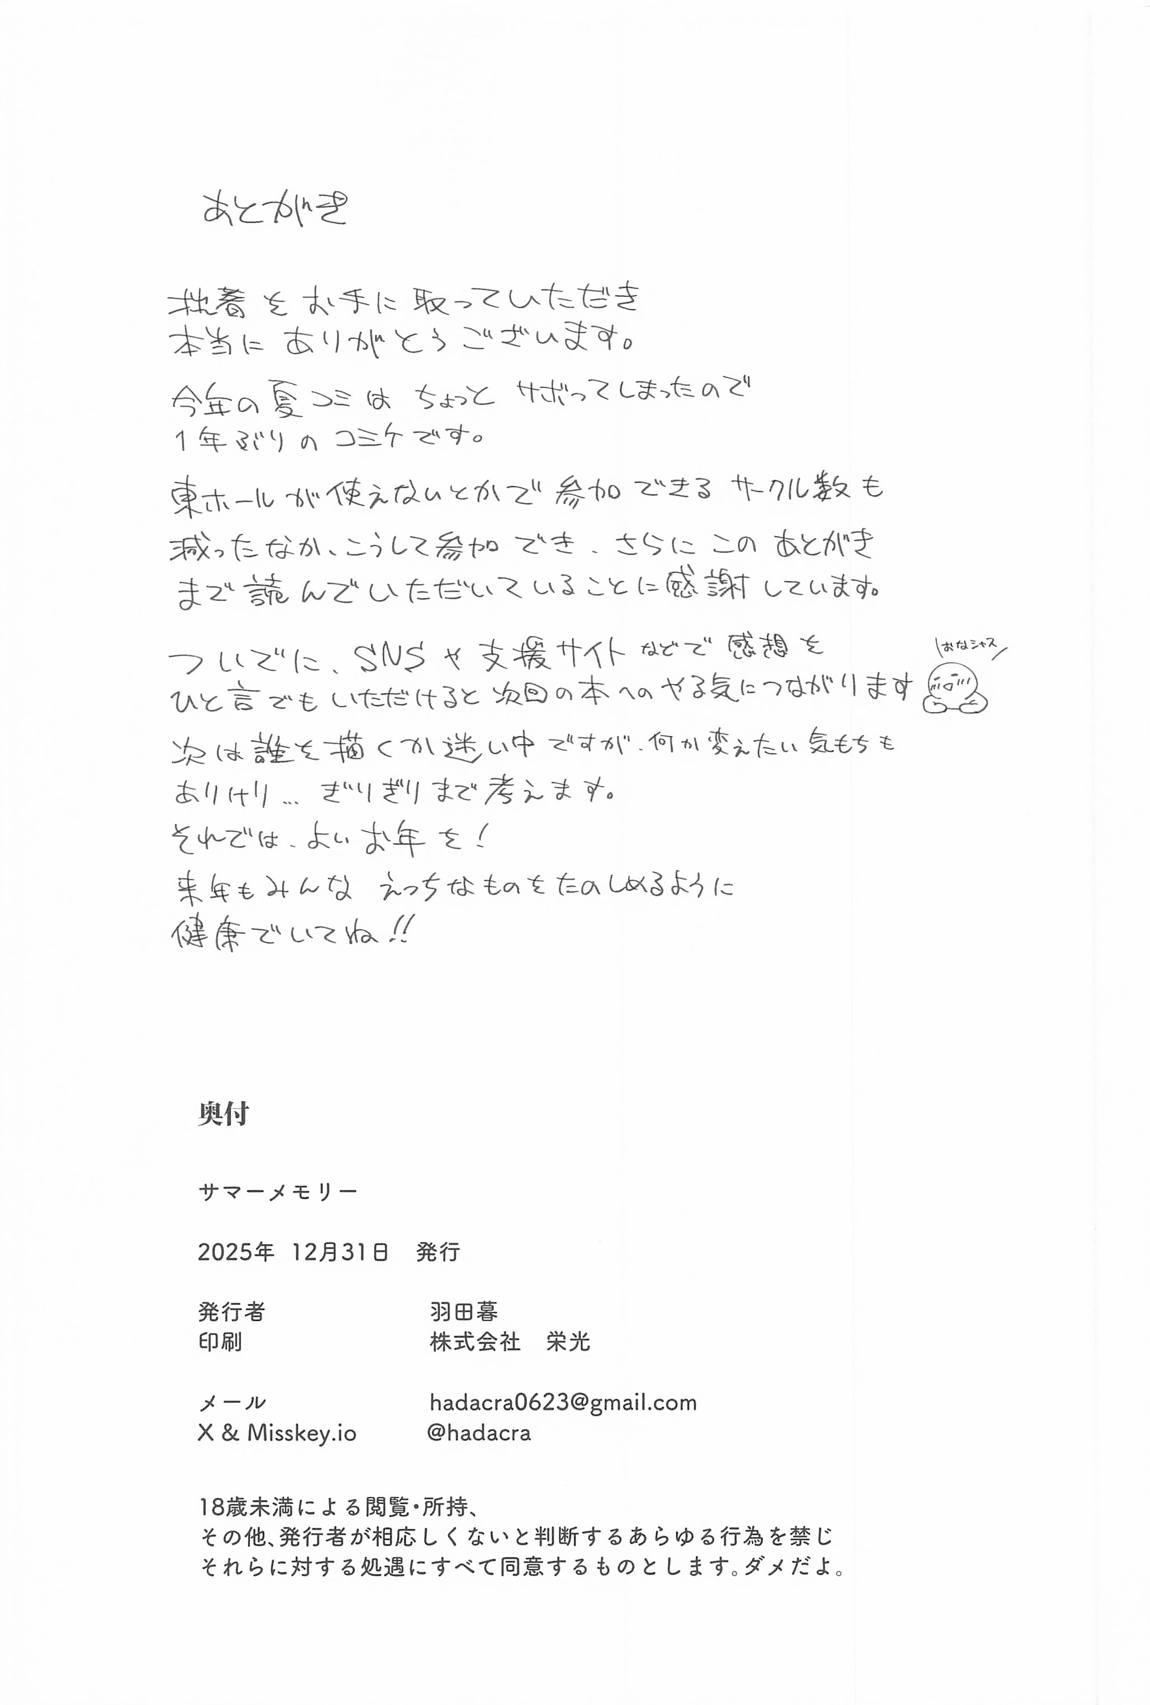 あとがき
拙著をお手に取っていただき
本当にありがとうございます。
今年の夏コミはちょっとサボってしまったので
1年ぶりのコミケです。
東ホールが使えないとかで参加できるサークル数も
減ったなか、こうして参加でき、さらにこのあとがき
まで読んでいただいていることに感謝しています。
ついでに、SNSや支援サイトなどで感想を
\おなシャス/
ひと言でもいただけると次回の本へのやる気につながります
次は誰を描くか迷い中ですが、何か変えたい気もちも
ありけり… ぎりぎりまで考えます。
それでは、よいお年を!
来年もみんな えっちなものをたのしめるように
健康でいてね!!
奥付
サマーメモリー
2025年 12月31日 発行
発行者 羽田暮
印刷 株式会社 栄光
メール hadacra0623@gmail.com
X & Misskey.io @hadacra
18歳未満による閲覧・所持、
その他、発行者が相応しくないと判断するあらゆる行為を禁じ
それらに対する処遇にすべて同意するものとします。ダメだよ。